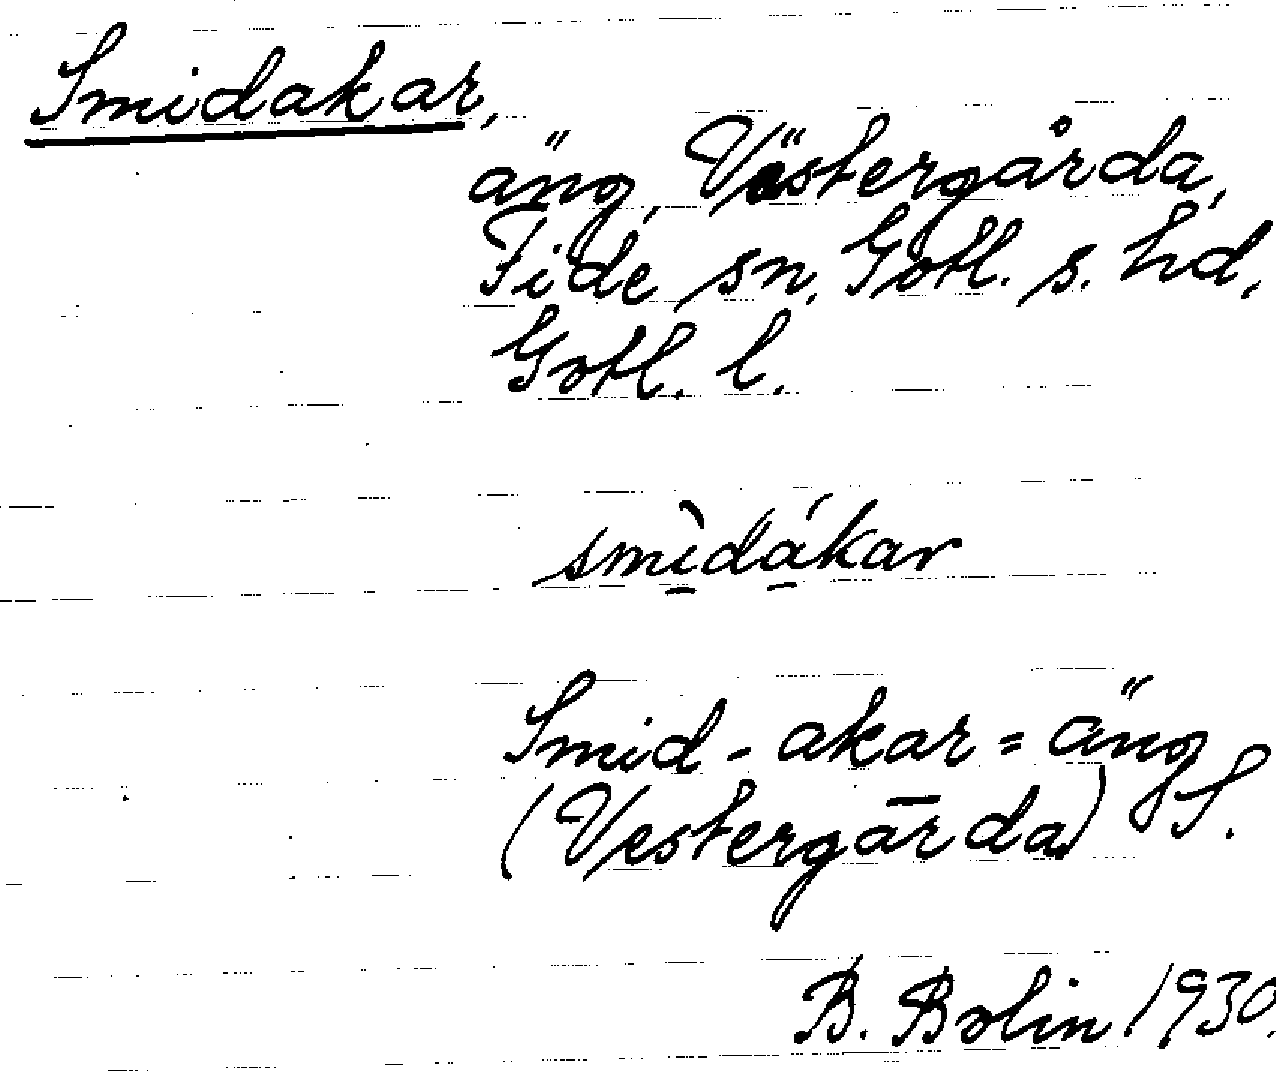 Smidakar,
äng, Västergårda,
Fide sn, Gotl. s. hd,
Gotl. l.
smì̱dá̱kar
Smid-akar = äng
(Vestergārda) S.
B. Bolin 1930.